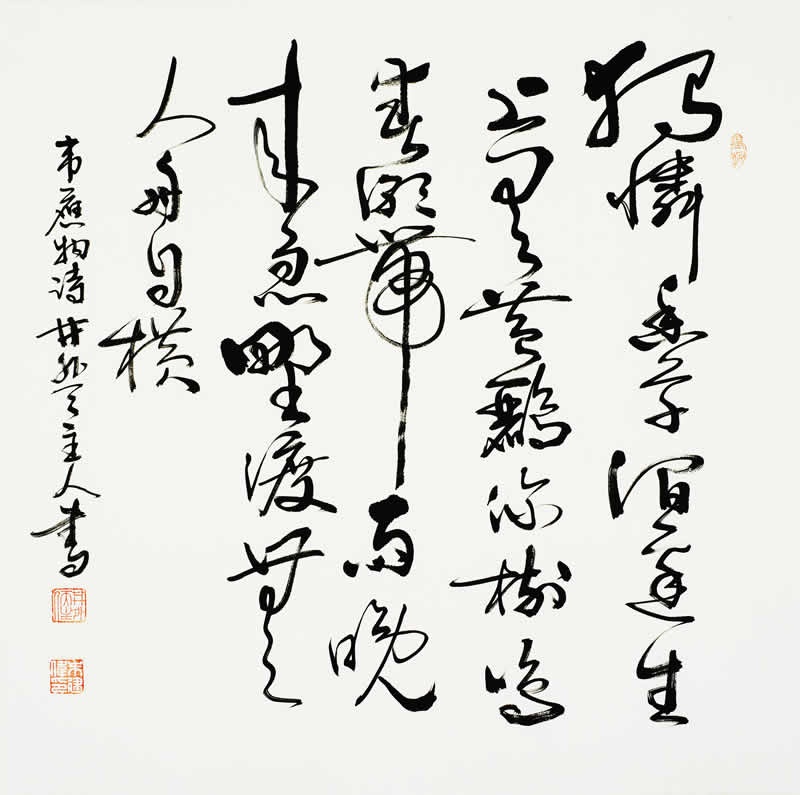 獨憐幽草澗邊生
上有黃鸝深樹鳴
春潮帶雨晚
來急野渡無
人舟自橫
韋應物詩 井外天主人書